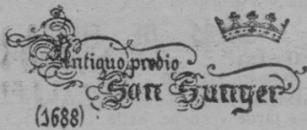 Antiguo predio
San Sunyer
(1688)